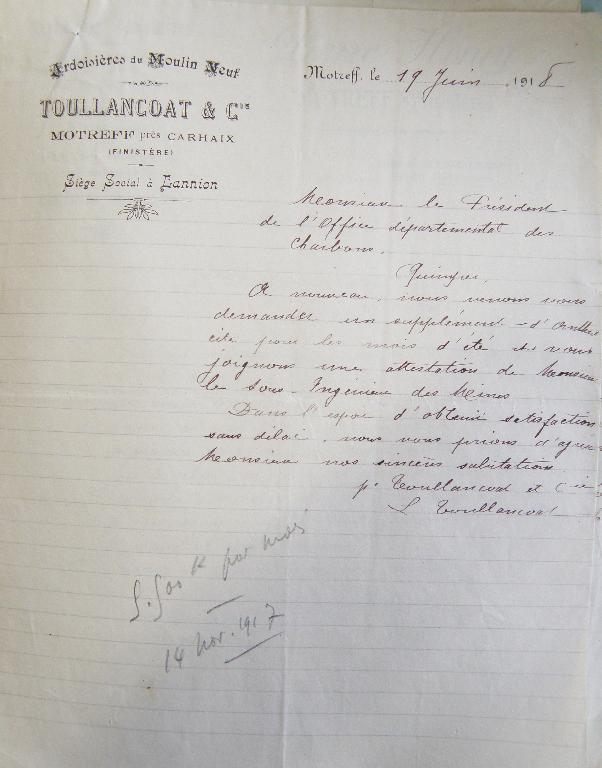 Ardoisières du Moulin Neuf
TOULLANCOAT & Cie
MOTREFF près CARHAIX
(FINISTÈRE)
Siège Social à Lannion
Motreff, le 19 Juin 1918
Monsieur le Président
de l'Office départemental des
Charbons.
Quimper.
A nouveau, nous venons vous
demander un supplément d'anthra
cite pour les mois d'été et vous
joignons une attestation de Monsieur
le Sous-Ingénieur des Mines
Dans l'espoir d'obtenir satisfaction
sans délai, nous vous prions d'agréer
Monsieur nos sincères salutations.
p. Toullancoat et Cie
L Toullancoat
500 K par mois
14 Nov. 1917